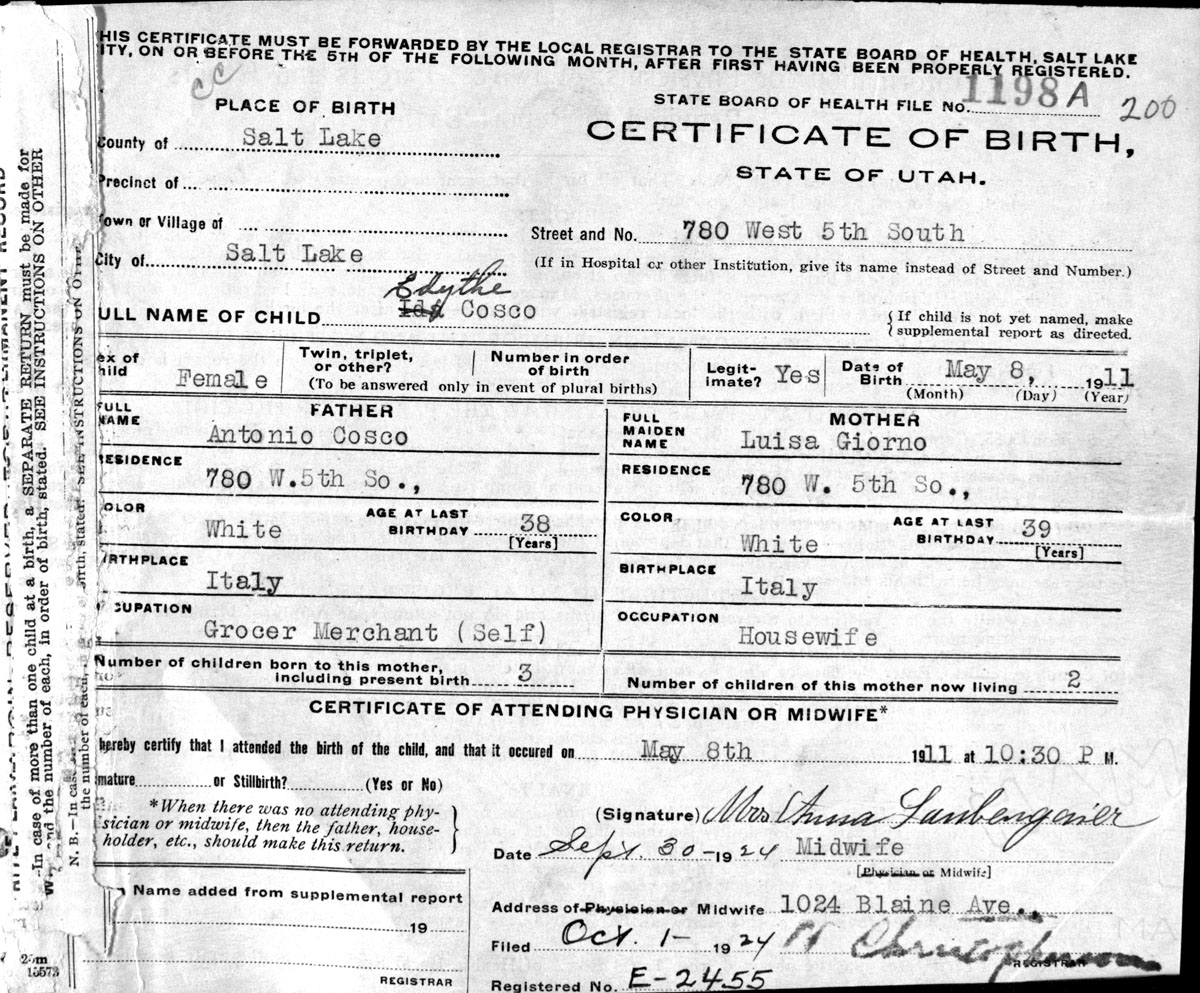 HIS CERTIFICATE MUST BE FORWARDED BY THE LOCAL REGISTRAR TO THE STATE BOARD OF HEALTH, SALT LAKE
ITY, ON OR BEFORE THE 5TH OF THE FOLLOWING MONTH, AFTER FIRST HAVING BEEN PROPERLY REGISTERED.
cc
PLACE OF BIRTH
STATE BOARD OF HEALTH FILE No. 1198A 200
County of Salt Lake
CERTIFICATE OF BIRTH,
STATE OF UTAH.
Precinct of
Town or Village of
Street and No. 780 West 5th South
City of Salt Lake
(If in Hospital or other Institution, give its name instead of Street and Number.)
Edythe
ULL NAME OF CHILD Ida Cosco
{If child is not yet named, make
supplemental report as directed.
ex of
hild Female
Twin, triplet,
or other?
Number in order
of birth
(To be answered only in event of plural births)
Legit-
imate? Yes
Date of
Birth May 8, 1911
(Month) (Day) (Year)
FULL
NAME
FATHER
Antonio Cosco
FULL
MAIDEN
NAME
MOTHER
Luisa Giorno
RESIDENCE
780 W.5th So.,
RESIDENCE
780 W. 5th So.,
COLOR
White
AGE AT LAST
BIRTHDAY 38
[Years]
COLOR
White
AGE AT LAST
BIRTHDAY 39
[Years]
IRTHPLACE
Italy
BIRTHPLACE
Italy
CUPATION
Grocer Merchant (Self)
OCCUPATION
Housewife
Number of children born to this mother,
including present birth 3
Number of children of this mother now living 2
CERTIFICATE OF ATTENDING PHYSICIAN OR MIDWIFE*
hereby certify that I attended the birth of the child, and that it occured on May 8th 1911 at 10:30 P M.
mature or Stillbirth? (Yes or No)
*When there was no attending phy-
sician or midwife, then the father, house-
holder, etc., should make this return.
(Signature) Mrs Anna Laubengaier
Date Sept. 30- 1924 Midwife
[Physician or Midwife]
Name added from supplemental report
19
REGISTRAR
Address of Physician or Midwife 1024 Blaine Ave.,
Filed Oct. 1- 1924
REGISTRAR
Registered No. E-2455
-In case of more than one child at a birth, a SEPARATE RETURN must be made for
and the number of each, in order of birth, stated. SEE INSTRUCTIONS ON OTHER
N. B.—In case
the number of each,
birth, stated. SEE INSTRUCTIONS ON
25m
15573